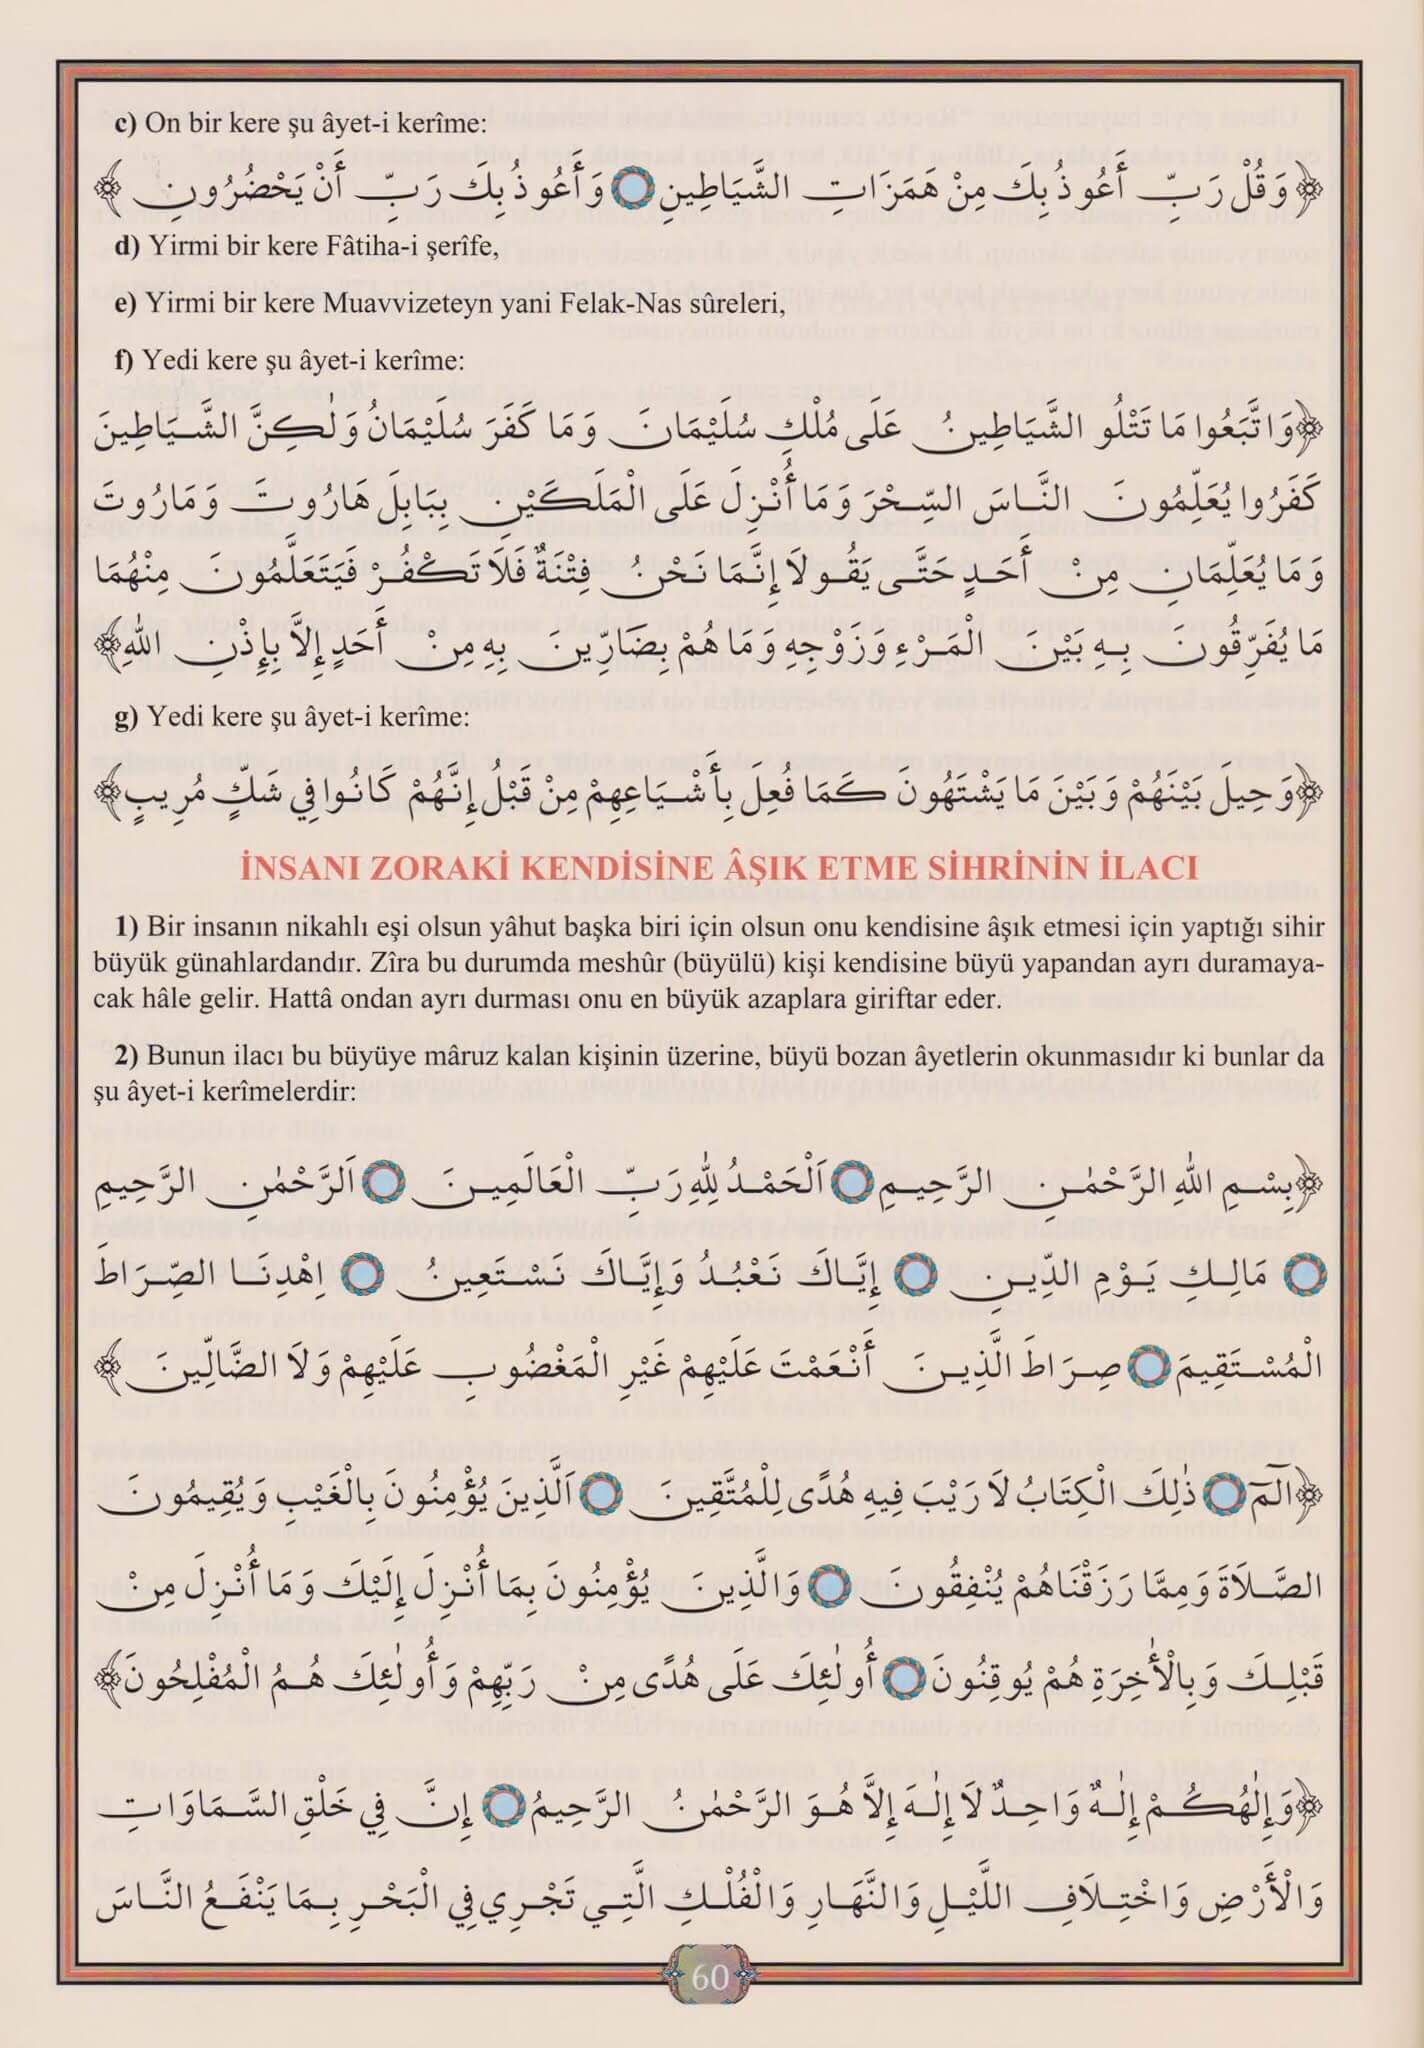 c) On bir kere şu âyet-i kerîme:
﴿وَقُلْ رَبِّ أَعُوذُ بِكَ مِنْ هَمَزَاتِ الشَّيَاطِينِ ۝ وَأَعُوذُ بِكَ رَبِّ أَنْ يَحْضُرُونِ﴾
d) Yirmi bir kere Fâtiha-i şerîfe,
e) Yirmi bir kere Muavvizeteyn yani Felak-Nas sûreleri,
f) Yedi kere şu âyet-i kerîme:
﴿وَاتَّبَعُوا مَا تَتْلُو الشَّيَاطِينُ عَلَى مُلْكِ سُلَيْمَانَ وَمَا كَفَرَ سُلَيْمَانُ وَلٰكِنَّ الشَّيَاطِينَ
كَفَرُوا يُعَلِّمُونَ النَّاسَ السِّحْرَ وَمَا أُنْزِلَ عَلَى الْمَلَكَيْنِ بِبَابِلَ هَارُوتَ وَمَارُوتَ
وَمَا يُعَلِّمَانِ مِنْ أَحَدٍ حَتَّى يَقُولَا إِنَّمَا نَحْنُ فِتْنَةٌ فَلَا تَكْفُرْ فَيَتَعَلَّمُونَ مِنْهُمَا
مَا يُفَرِّقُونَ بِهِ بَيْنَ الْمَرْءِ وَزَوْجِهِ وَمَا هُمْ بِضَارِّينَ بِهِ مِنْ أَحَدٍ إِلَّا بِإِذْنِ اللهِ﴾
g) Yedi kere şu âyet-i kerîme:
﴿وَحِيلَ بَيْنَهُمْ وَبَيْنَ مَا يَشْتَهُونَ كَمَا فُعِلَ بِأَشْيَاعِهِمْ مِنْ قَبْلُ إِنَّهُمْ كَانُوا فِي شَكٍّ مُرِيبٍ﴾
İNSANI ZORAKİ KENDİSİNE ÂŞIK ETME SİHRİNİN İLACI
1) Bir insanın nikahlı eşi olsun yâhut başka biri için olsun onu kendisine âşık etmesi için yaptığı sihir
büyük günahlardandır. Zîra bu durumda meshûr (büyülü) kişi kendisine büyü yapandan ayrı duramaya-
cak hâle gelir. Hattâ ondan ayrı durması onu en büyük azaplara giriftar eder.
2) Bunun ilacı bu büyüye mâruz kalan kişinin üzerine, büyü bozan âyetlerin okunmasıdır ki bunlar da
şu âyet-i kerîmelerdir:
﴿بِسْمِ اللهِ الرَّحْمٰنِ الرَّحِيمِ ۝ اَلْحَمْدُ لِلّٰهِ رَبِّ الْعَالَمِينَ ۝ اَلرَّحْمٰنِ الرَّحِيمِ
۝ مَالِكِ يَوْمِ الدِّينِ ۝ إِيَّاكَ نَعْبُدُ وَإِيَّاكَ نَسْتَعِينُ ۝ اِهْدِنَا الصِّرَاطَ
الْمُسْتَقِيمَ ۝ صِرَاطَ الَّذِينَ أَنْعَمْتَ عَلَيْهِمْ غَيْرِ الْمَغْضُوبِ عَلَيْهِمْ وَلَا الضَّالِّينَ﴾
﴿الٓمٓ ۝ ذٰلِكَ الْكِتَابُ لَا رَيْبَ فِيهِ هُدًى لِلْمُتَّقِينَ ۝ اَلَّذِينَ يُؤْمِنُونَ بِالْغَيْبِ وَيُقِيمُونَ
الصَّلَاةَ وَمِمَّا رَزَقْنَاهُمْ يُنْفِقُونَ ۝ وَالَّذِينَ يُؤْمِنُونَ بِمَا أُنْزِلَ إِلَيْكَ وَمَا أُنْزِلَ مِنْ
قَبْلِكَ وَبِالْأٰخِرَةِ هُمْ يُوقِنُونَ ۝ أُولٰئِكَ عَلَى هُدًى مِنْ رَبِّهِمْ وَأُولٰئِكَ هُمُ الْمُفْلِحُونَ﴾
﴿وَإِلٰهُكُمْ إِلٰهٌ وَاحِدٌ لَا إِلٰهَ إِلَّا هُوَ الرَّحْمٰنُ الرَّحِيمُ ۝ إِنَّ فِي خَلْقِ السَّمَاوَاتِ
وَالْأَرْضِ وَاخْتِلَافِ اللَّيْلِ وَالنَّهَارِ وَالْفُلْكِ الَّتِي تَجْرِي فِي الْبَحْرِ بِمَا يَنْفَعُ النَّاسَ
60